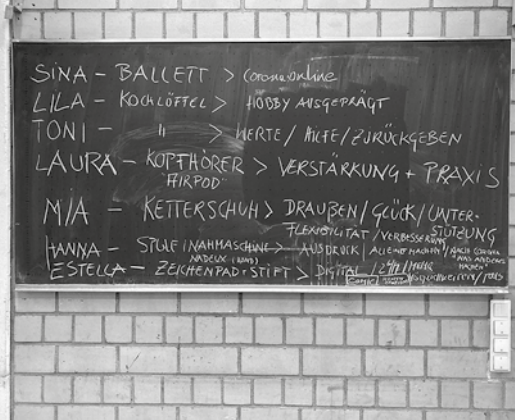 SINA – BALLETT > Corona online
LILA – KOCHLÖFFEL > HOBBY AUSGEPRÄGT
TONI – " > WERTE / HILFE / ZURÜCKGEBEN
LAURA – KOPFHÖRER > VERSTÄRKUNG + PRAXIS
"AIRPOD"
MIA – KETTERSCHUH > DRAUßEN / GLÜCK / UNTER-
STÜTZUNG
FLEXIBILITÄT / VERBESSERUNG
HANNA – STULE / NÄHMASCHINE > AUSDRUCK / ALLEINE MACHEN / NACH CORONA
"WAS ANDERES
MACHEN"
ESTELLA – ZEICHENPAD + STIFT > DIGITAL /
COMIC